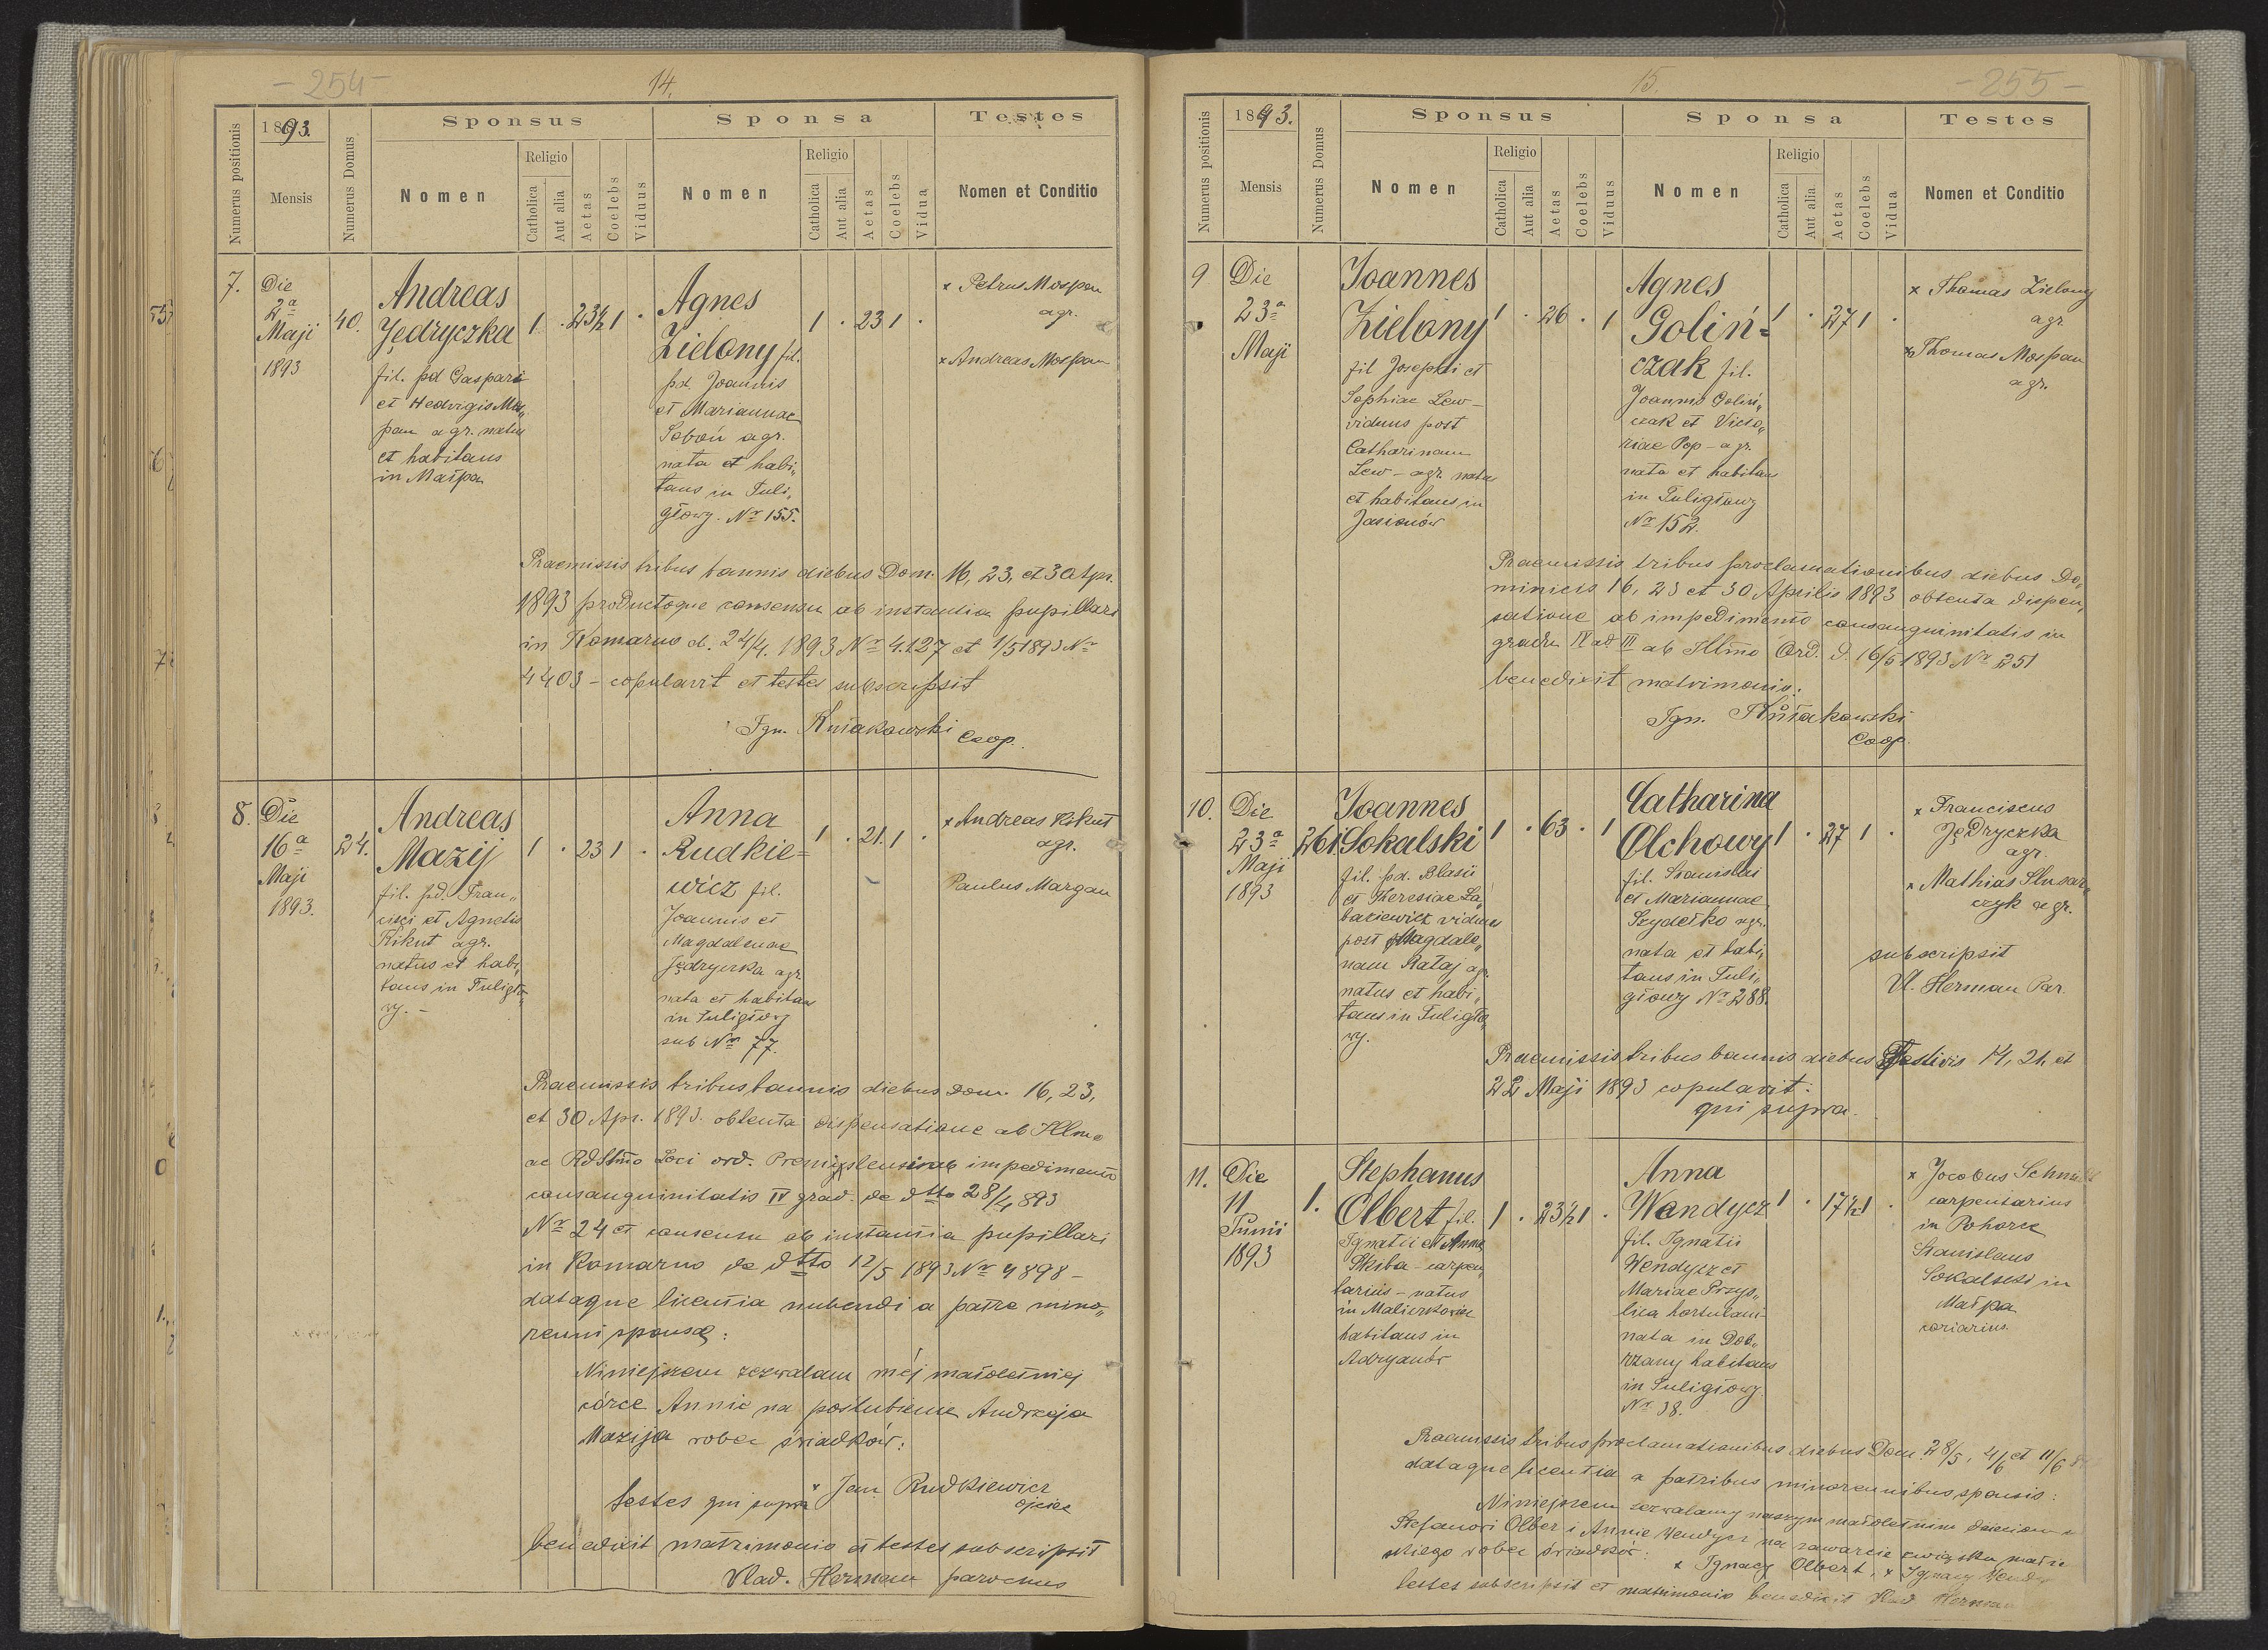 - 254 -
14.
Numerus positionis
1893.
Mensis
Numerus Domus
Sponsus
Nomen
Religio
Catholica
Aut alia
Aetas
Coelebs
Viduus
Sponsa
Nomen
Religio
Catholica
Aut alia
Aetas
Coelebs
Vidua
Testes
Nomen et Conditio
7.
Die
2a
Maji
1893
40.
Andreas
Jędryczka
fil. pd Gaspari
et Hedvigis Mos„
pan agr. natus
et habitans
in Małpa
1 . 23½ 1 .
Agnes
Zielony fil.
pd. Joannis
et Mariannae
Soboń agr.
nata et habi„
tans in Tuli„
głowy. Nr 155.
1 . 23 1 .
x Petrus Mospan
agr.
x Andreas Mospan
Praemissis tribus bannis diebus Dom. 16, 23, et 30 Apr.
1893 productoque consensu ab instantia pupillari
in Komarno d. 24/4. 1893 Nr 4127 et 1/5 1893 Nr
4403 - copulavit et testes subscripsit
Ign. Kniakowski Coop.
8.
Die
16a
Maji
1893.
24.
Andreas
Mazij
fil. pd. Fran„
cisci et Agnetis
Kikut agr.
natus et habi„
tans in Tuligło„
wy. -
1 . 23 1 .
Anna
Rudkie=
wicz fil.
Joannis et
Magdalenae
Jędryczka agr.
nata et habitans
in Tuligłowy
sub Nro 77.
1 . 21. 1 .
x Andreas Kikut
agr.
Paulus Margan
Praemissis tribus bannis diebus Dom. 16, 23,
et 30 Apr. 1893. obtenta dispensatione ab Illmo
ac Rdsmo Loci ord. Premysliensi ab impedimento
consanguinitatis IV grad. de dtto 28/4 893
Nr 24 et consensu ab instantia pupillari
in Komarno de dtto 12/5 1893 Nr 4898 -
dataque licentia nubendi a patre mino„
renni sponsae:
Niniejszem zezwalam mej małoletniej
córce Annie na poślubienie Andrzeja
Mazija wobec świadków:
testes qui supra x Jan Rudkiewicz
ojciec
benedixit matrimonio et testes subscripsit
Vlad. Herman parochus
15.
- 255 -
Numerus positionis
1893.
Mensis
Numerus Domus
Sponsus
Nomen
Religio
Catholica
Aut alia
Aetas
Coelebs
Viduus
Sponsa
Nomen
Religio
Catholica
Aut alia
Aetas
Coelebs
Vidua
Testes
Nomen et Conditio
9
Die
23a
Maji
Joannes
Zielony
fil Josephi et
Sophiae Lew -
viduus post
Catharinam
Lew - agr. natus
et habitans in
Jasionów
1 . 26 . 1
Agnes
Goliń=
czak fil.
Joannis Goliń„
czak et Victo„
riae Pop - agr.
nata et habitans
in Tuligłowy
Nr 152.
1 . 27 1 .
x Thomas Zielony
agr
x Thomas Mospan
agr.
Praemissis tribus proclamationibus diebus Do„
minicis 16, 23 et 30 Aprilis 1893 obtenta dispen„
satione ab impedimento consanguinitatis in
gradu IV ad III ab Illmo Ord. d. 16/5 1893 Nr 251
benedixit matrimonio:
Ign. Kniakowski
Coop.
10.
Die
23a
Maji
1893
261
Joannes
Sokalski
fil. pd. Blasii
et Theresiae La„
baziewicz viduus
post Magdale„
nam Rataj agr.
natus et habi„
tans in Tuligło„
wy.
1 . 63 . 1
Catharina
Olchowy
fil. Stanislai
et Mariannae
Szydełko agr.
nata et habi„
tans in Tuli„
głowy Nr 288.
1 . 27 1 .
x Franciscus
Jędryczka
agr.
x Mathias Slusar„
czyk agr.
subscripsit
Vl. Herman Par.
Praemissis tribus bannis diebus Festivis 14, 21, et
22 Maji 1893 copulavit.
qui supra.
11.
Die
11
Junii
1893
1.
Stephanus
Olbert fil.
Ignatii et Anna
Skiba - carpen„
tarius - natus
in
habitans in
Adryanów
1 . 23½ 1 .
Anna
Wendycz
fil. Ignatii
Wendycz et
Mariae Przys„
lica hortulani
nata in Dob„
rzany habitans
in Tuligłowy.
Nr 38.
1 . 17½ 1 .
x Jacobus
carpentarius
in Pohorce
Stanislaus
Sokalski in
Małpa
coriarius.
Praemissis tribus proclamationibus diebus Dom. 28/5, 4/6 et 11/6
dataque licentia a patribus minorennibus sponsis:
Niniejszem zezwalamy naszym małoletnim dzieciom
Stefanowi Olber i Annie Wendycz na zawarcie związku małże
skiego wobec świadków:
x Ignacy Olbert, x Ignacy
testes subscripsit et matrimonio benedixit Vlad Herman